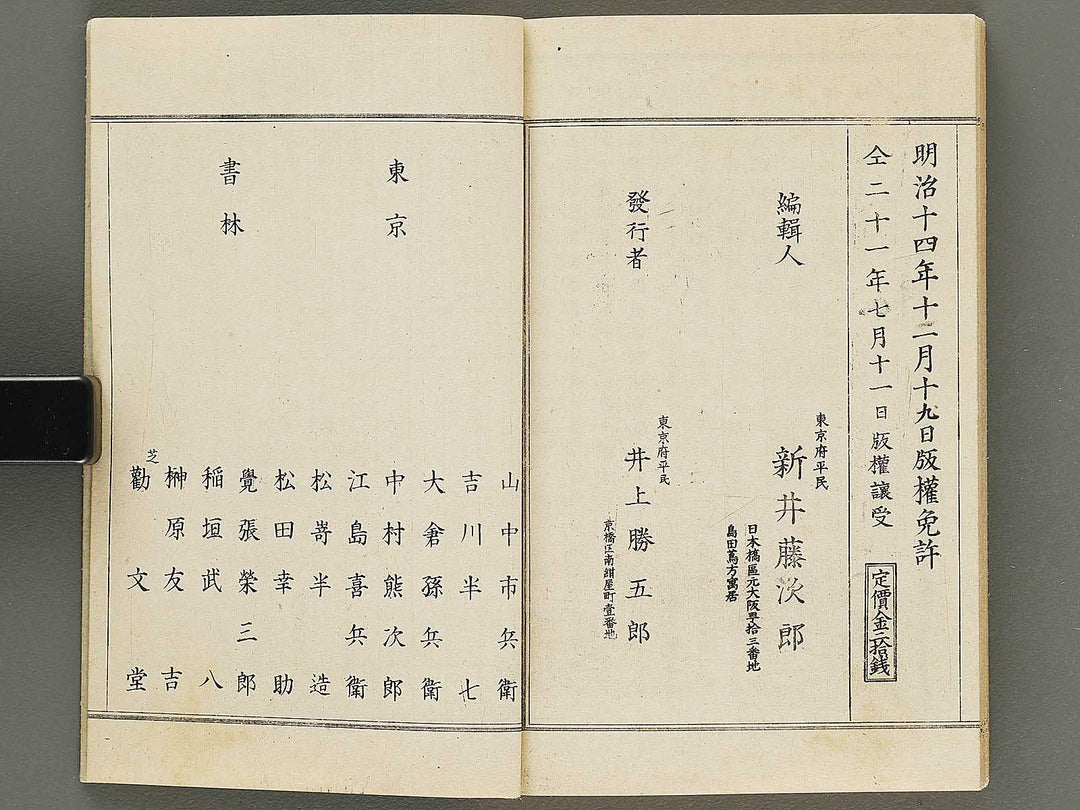 明治十四年十二月十九日版權免許
仝二十一年七月十一日版權讓受
定價金二拾銭
編輯人
東京府平民
新井藤次郎
日本橋區元大阪町拾三番地
島田萬方寓居
發行者
東京府平民
井上勝五郎
京橋區南紺屋町壹番地
東京
書林
山中市兵衛
吉川半七
大倉孫兵衛
中村熊次郎
江島喜兵衛
松嵜半造
松田幸助
覺張榮三郎
稲垣武八
榊原友吉
芝
勸文堂